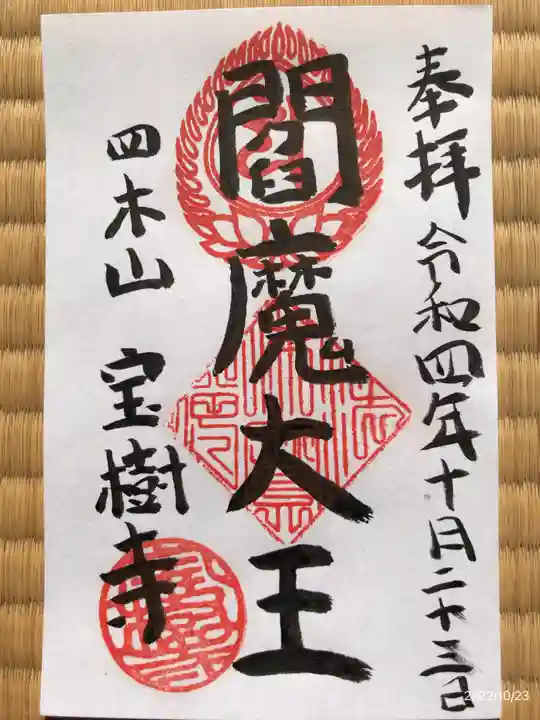 奉拝 令和四年十月二十三日
閻魔大王
四木山 宝樹寺
2022/10/23